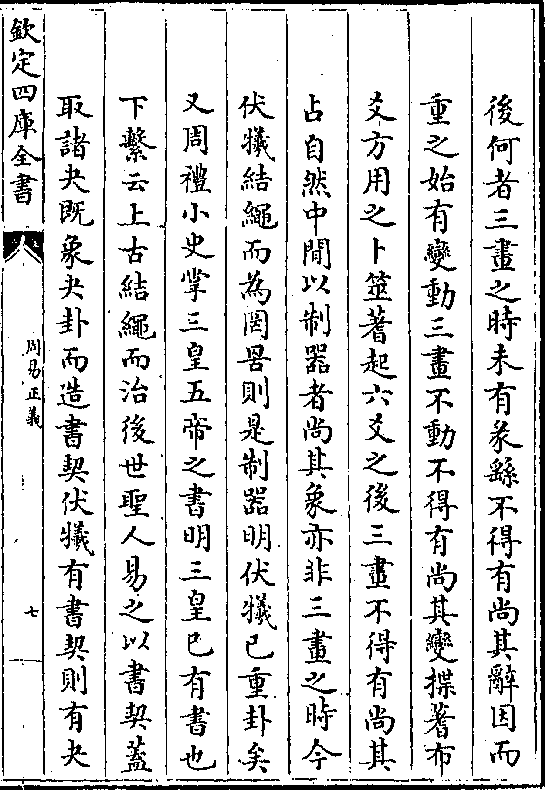 後何者三畫之時未有彖繇不得有尚其辭因而
重之始有變動三畫不動不得有尚其變揲蓍布
爻方用之卜筮蓍起六爻之後三畫不得有尚其
占自然中間以制器者尚其象亦非三畫之時今
伏犧結繩而為罔罟則是制器明伏犧已重卦矣
又周禮小史掌三皇五帝之書明三皇已有書也
下繫云上古結繩而治後世聖人易之以書契蓋
取諸夬既象夬卦而造書契伏犧有書契則有夬
欽定四庫全書
周易正義
七